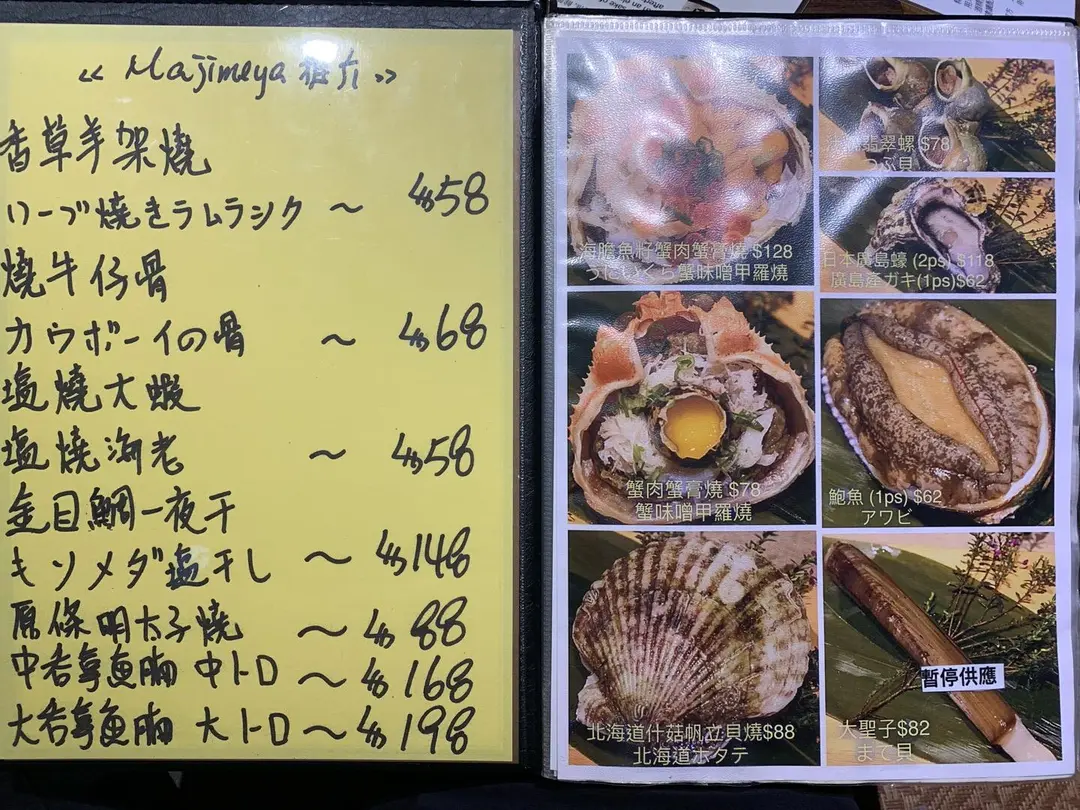 « Majimeya 推介 »
香草羊架燒
ハーブ燒きラムラック ～ $58
燒牛仔骨
カウボーイの骨 ～ $68
塩燒大蝦
塩燒海老 ～ $58
金目鯛一夜干
キンメダ塩干し ～ $148
原條明太子燒 ～ $88
中吞拿魚腩 中トロ ～ $168
大吞拿魚腩 大トロ ～ $198
海膽魚籽蟹肉蟹膏燒 $128
うにいくら蟹味噌甲羅燒
蟹肉蟹膏燒 $78
蟹味噌甲羅燒
北海道什菇帆立貝燒$88
北海道ホタテ
翡翠螺 $78
つぶ貝
日本廣島蠔 (2ps) $118
廣島産ガキ(1ps)$62
鮑魚 (1ps) $62
アワビ
暫停供應
大聖子$82
まて貝